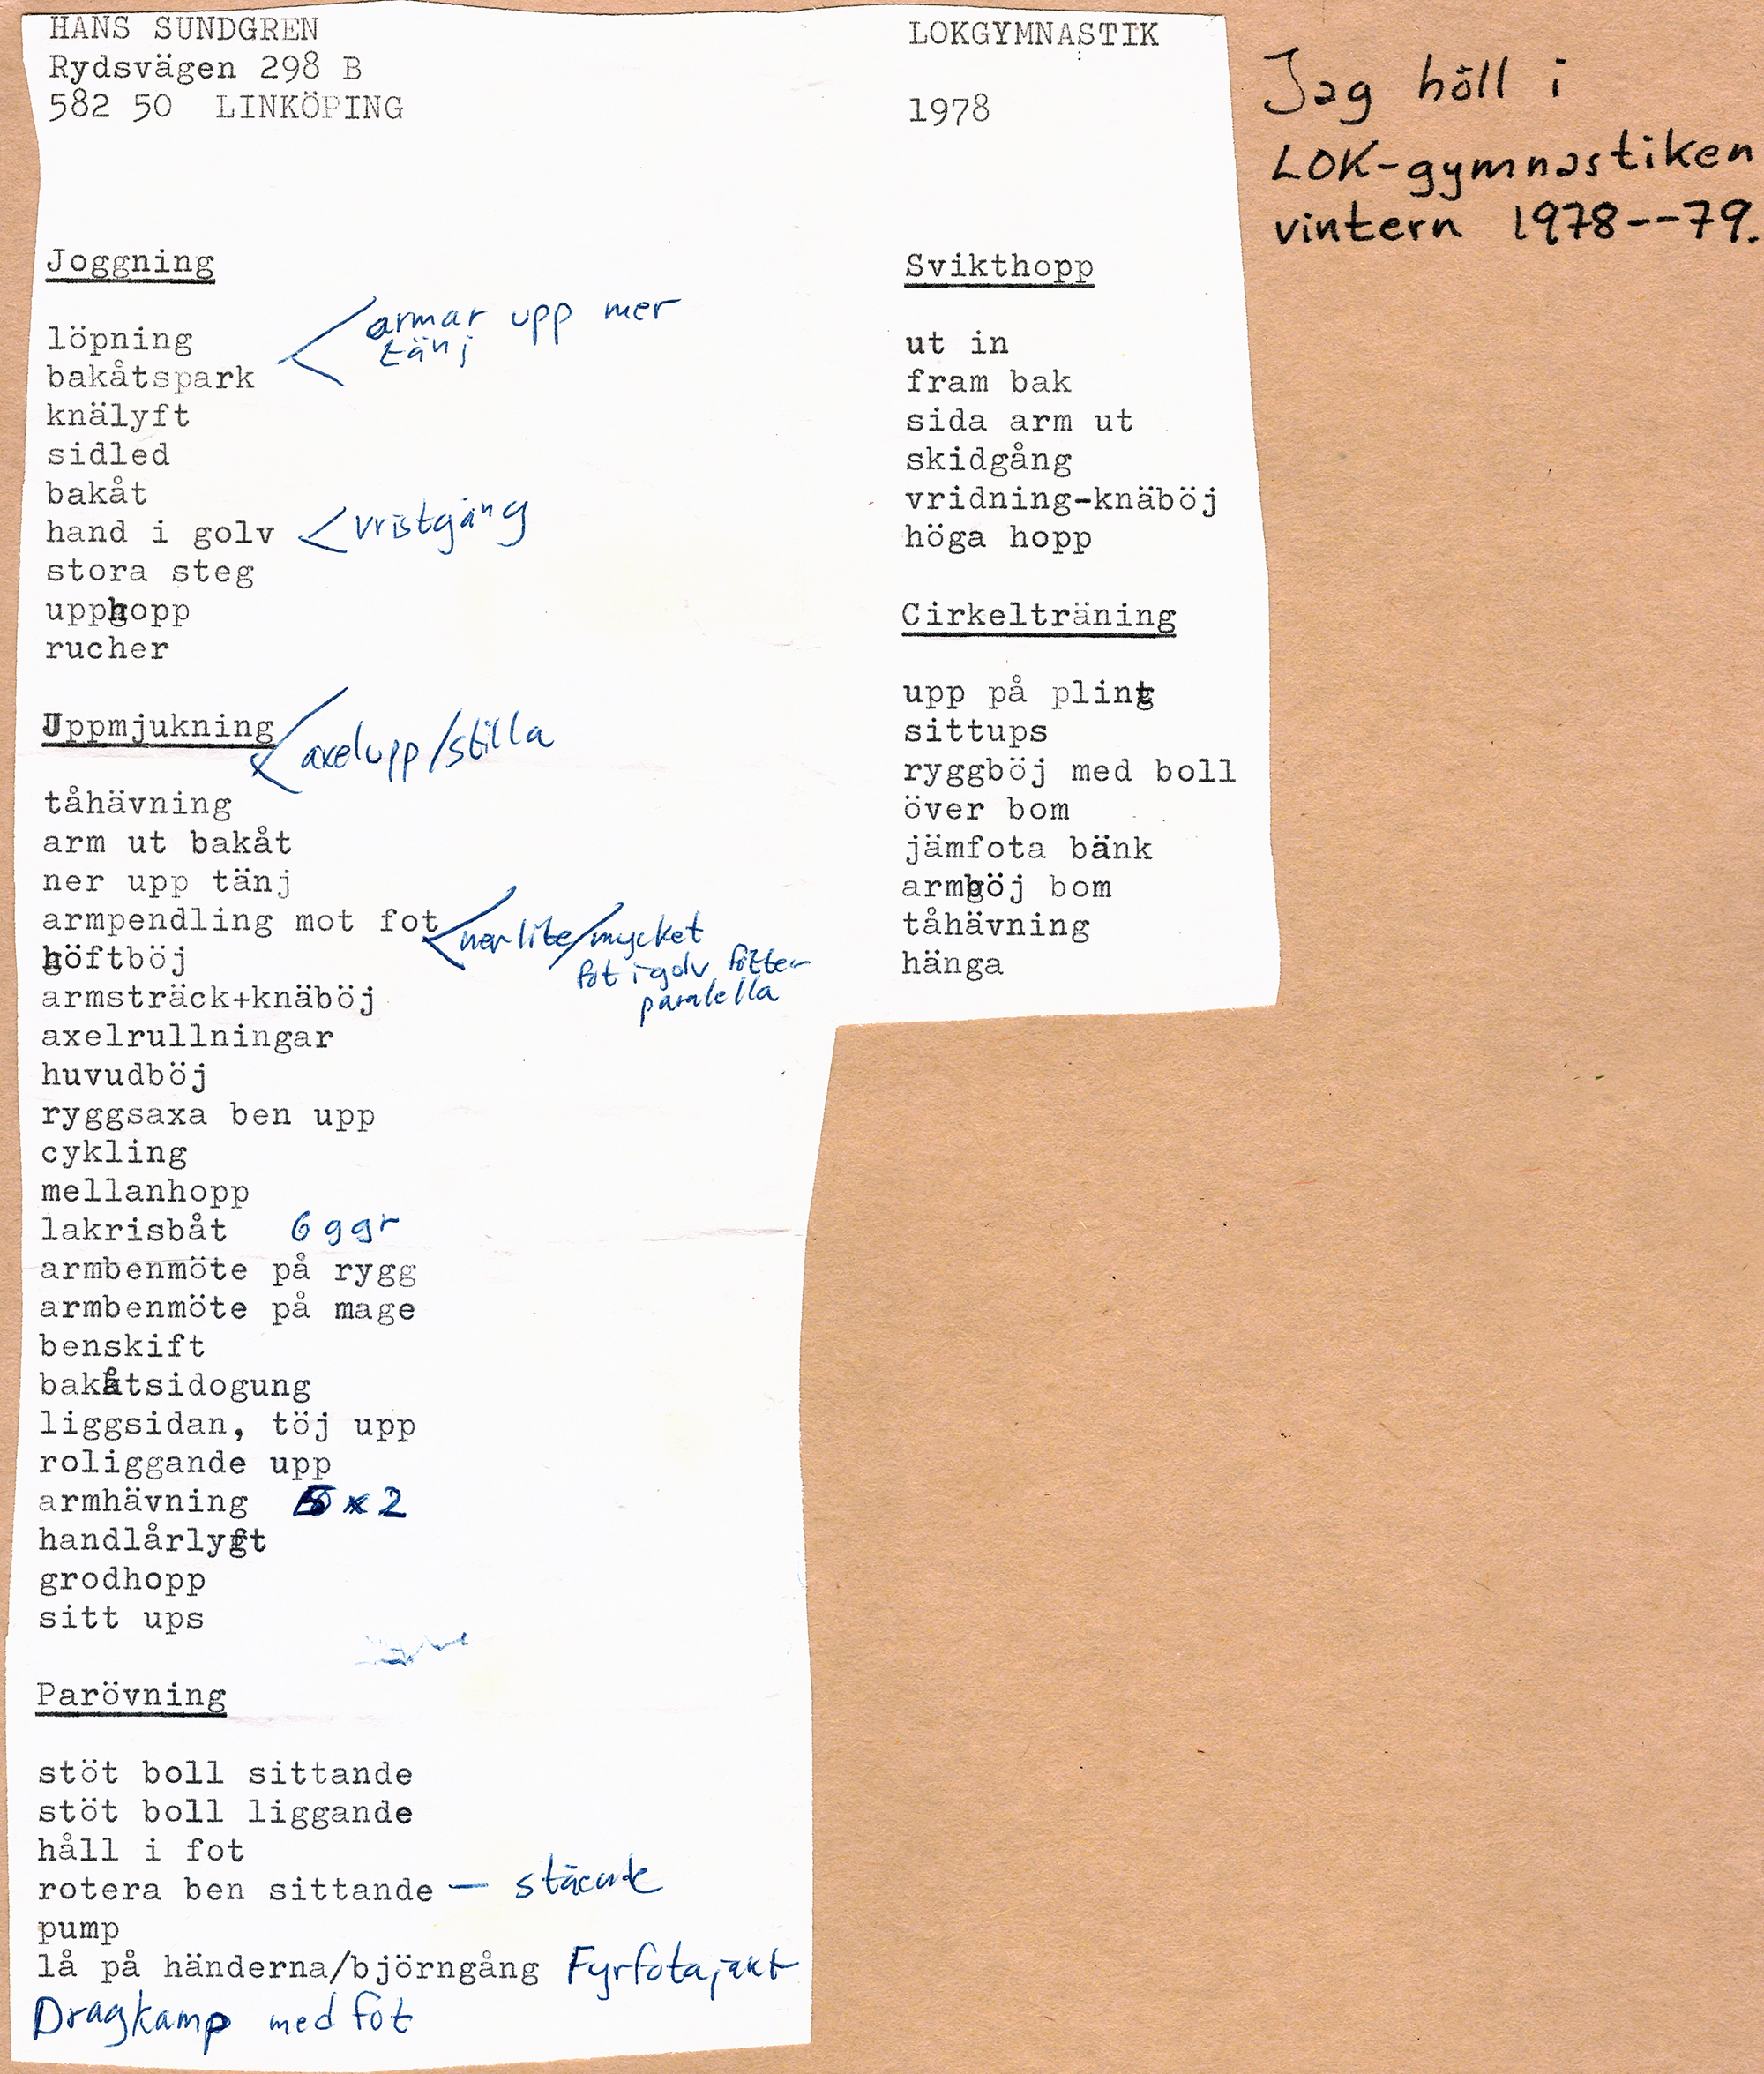 HANS SUNDGREN
Rydsvägen 298 B
582 50 LINKÖPING
Joggning
löpning
armar upp mer
tänj
bakåtspark
knälyft
sidled
bakåt
hand i golv
vristgång
stora steg
upphopp
rucher
Uppmjukning
axelupp/stilla
tåhävning
arm ut bakåt
ner upp tänj
armpendling mot fot
ner lite/mycket
fot i golv fötter
paralella
höftböj
armsträck+knäböj
axelrullningar
huvudböj
ryggsaxa ben upp
cykling
mellanhopp
lakrisbåt 6 ggr
armbenmöte på rygg
armbenmöte på mage
benskift
bakåtsidogung
liggsidan, töj upp
roliggande upp
armhävning 5 x 2
handlårlyft
grodhopp
sitt ups
Parövning
stöt boll sittande
stöt boll liggande
håll i fot
rotera ben sittande — stående
pump
lå på händerna/björngång Fyrfotajakt
Dragkamp med fot
LOKGYMNASTIK
1978
Svikthopp
ut in
fram bak
sida arm ut
skidgång
vridning-knäböj
höga hopp
Cirkelträning
upp på plint
sittups
ryggböj med boll
över bom
jämfota bänk
armböj bom
tåhävning
hänga
Jag höll i
LOK-gymnastiken
vintern 1978--79.